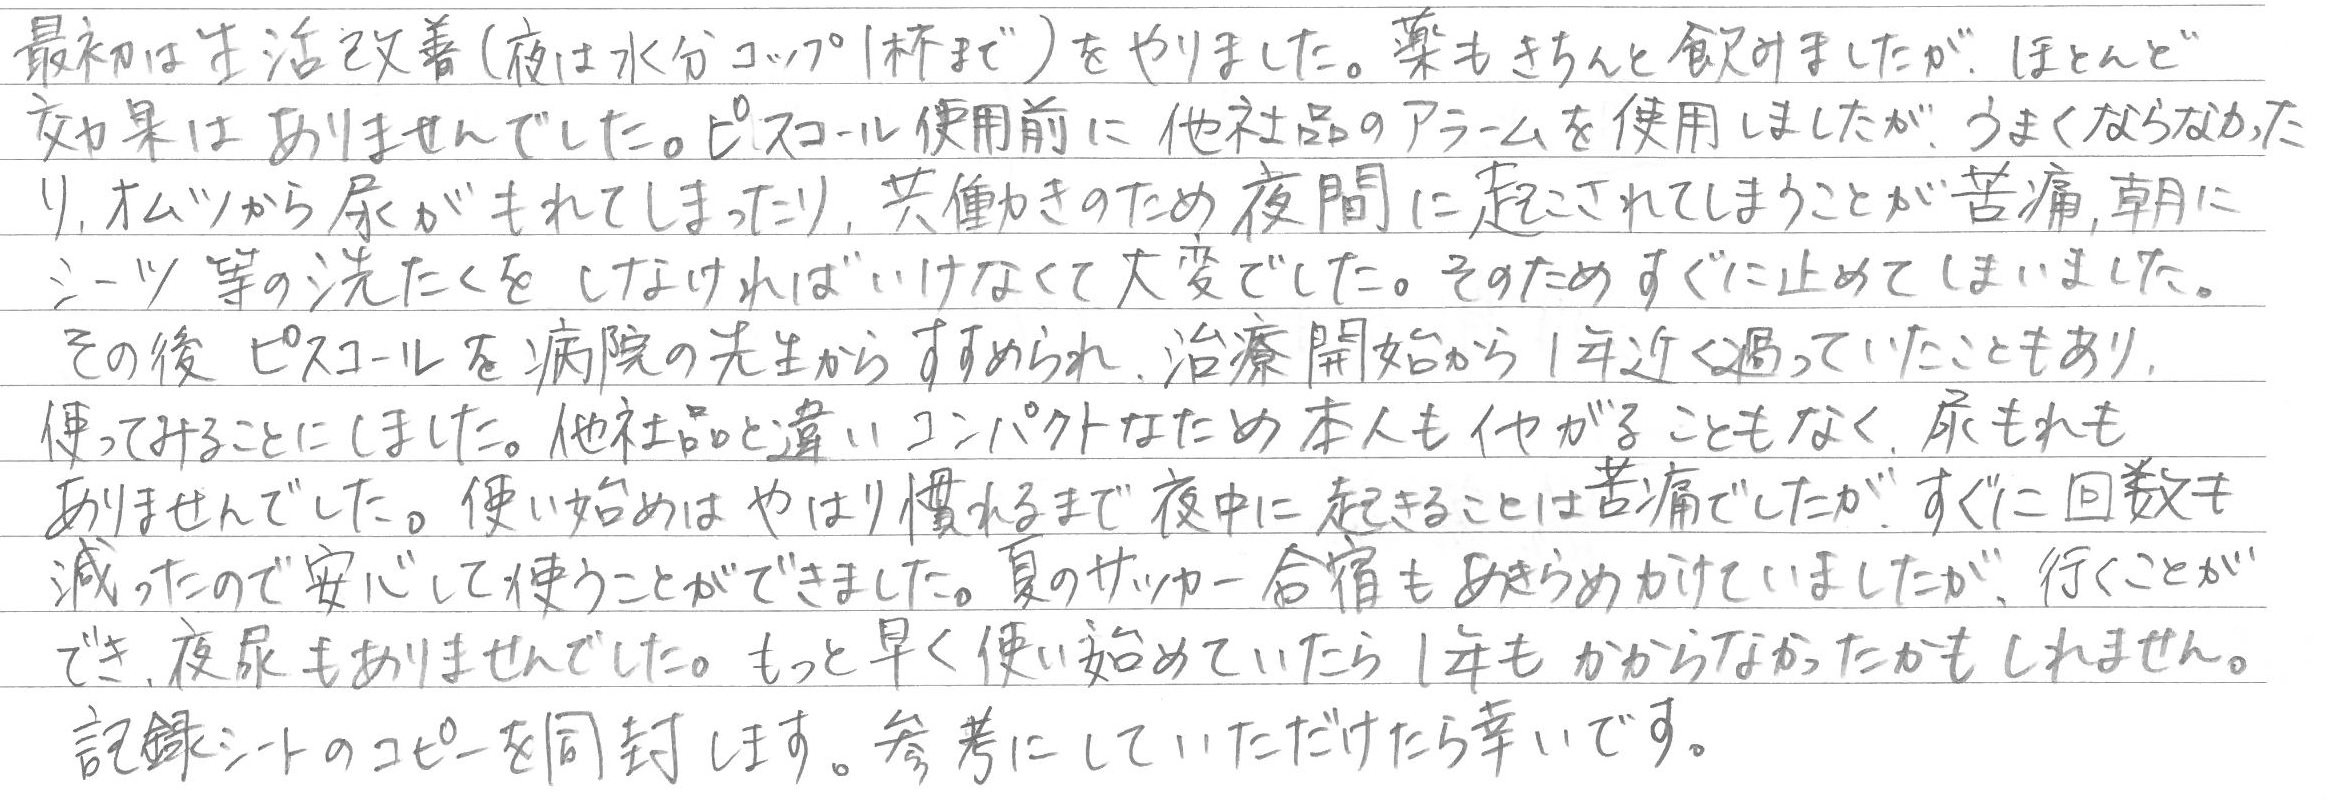 最初は生活改善(夜は水分コップ1杯まで)をやりました。薬もきちんと飲みましたが、ほとんど
効果はありませんでした。ピスコール使用前に他社品のアラームを使用しましたが、うまくならなかった
り、オムツから尿がもれてしまったり、共働きのため夜間に起こされてしまうことが苦痛,朝に
シーツ等の洗たくをしなければいけなくて大変でした。そのためすぐに止めてしまいました。
その後ピスコールを病院の先生からすすめられ、治療開始から1年近く過っていたこともあり、
使ってみることにしました。他社品と違いコンパクトなため本人もイヤがることもなく、尿もれも
ありませんでした。使い始めはやはり慣れるまで夜中に起きることは苦痛でしたが、すぐに回数も
減ったので安心して使うことができました。夏のサッカー合宿もあきらめかけていましたが、行くことが
でき、夜尿もありませんでした。もっと早く使い始めていたら1年もかからなかったかもしれません。
記録シートのコピーを同封します。参考にしていただけたら幸いです。